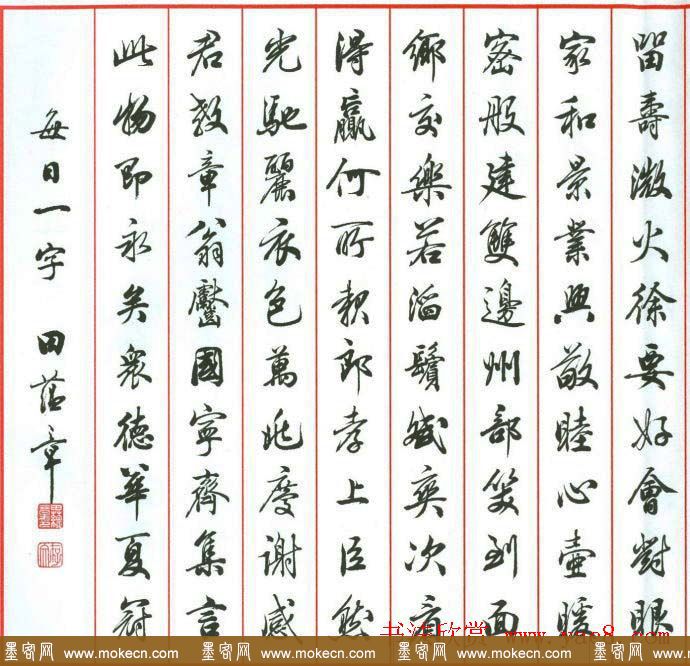 留壽澂火徐要好會對眼
家和景業興敬睦心壺暖
密般建雙邊州部笑到面
鄉交樂若滔鬢斌奕次
得贏何所親郎孝上臣然
光馳麗衣色萬兆度謝感
君教章翁鑿國寧齊集言
此物即永矣眾德華夏冠
每日一字 田蕴章
书法欣赏 www.yac8.com
墨客网 www.mokecn.com 墨客网 www.mokecn.com 墨客网 www.mokecn.com 墨客网 www.mokecn.com